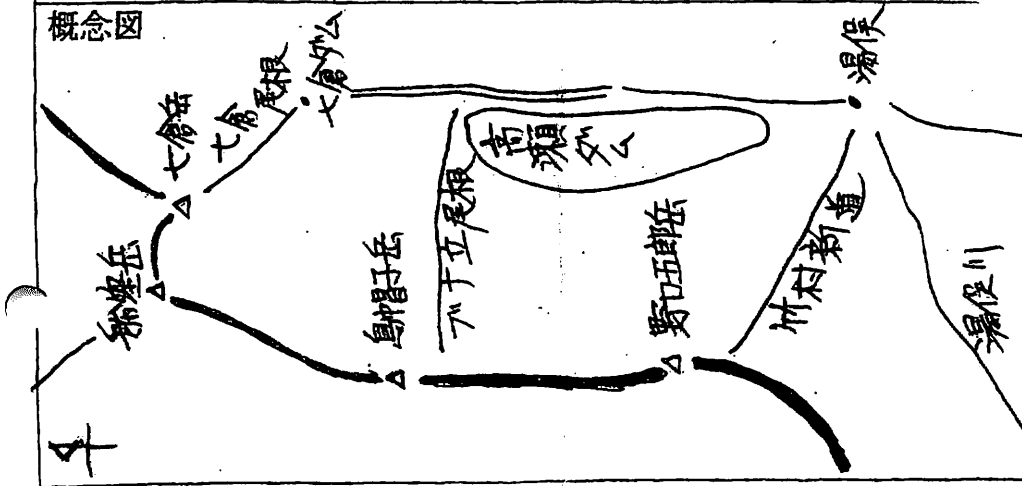 概念図
七倉岳
七倉尾根
七倉ダム
湯俣
高瀬
ダム
ブナ立尾根
烏帽子岳
野口五郎岳
竹村新道
湯俣川